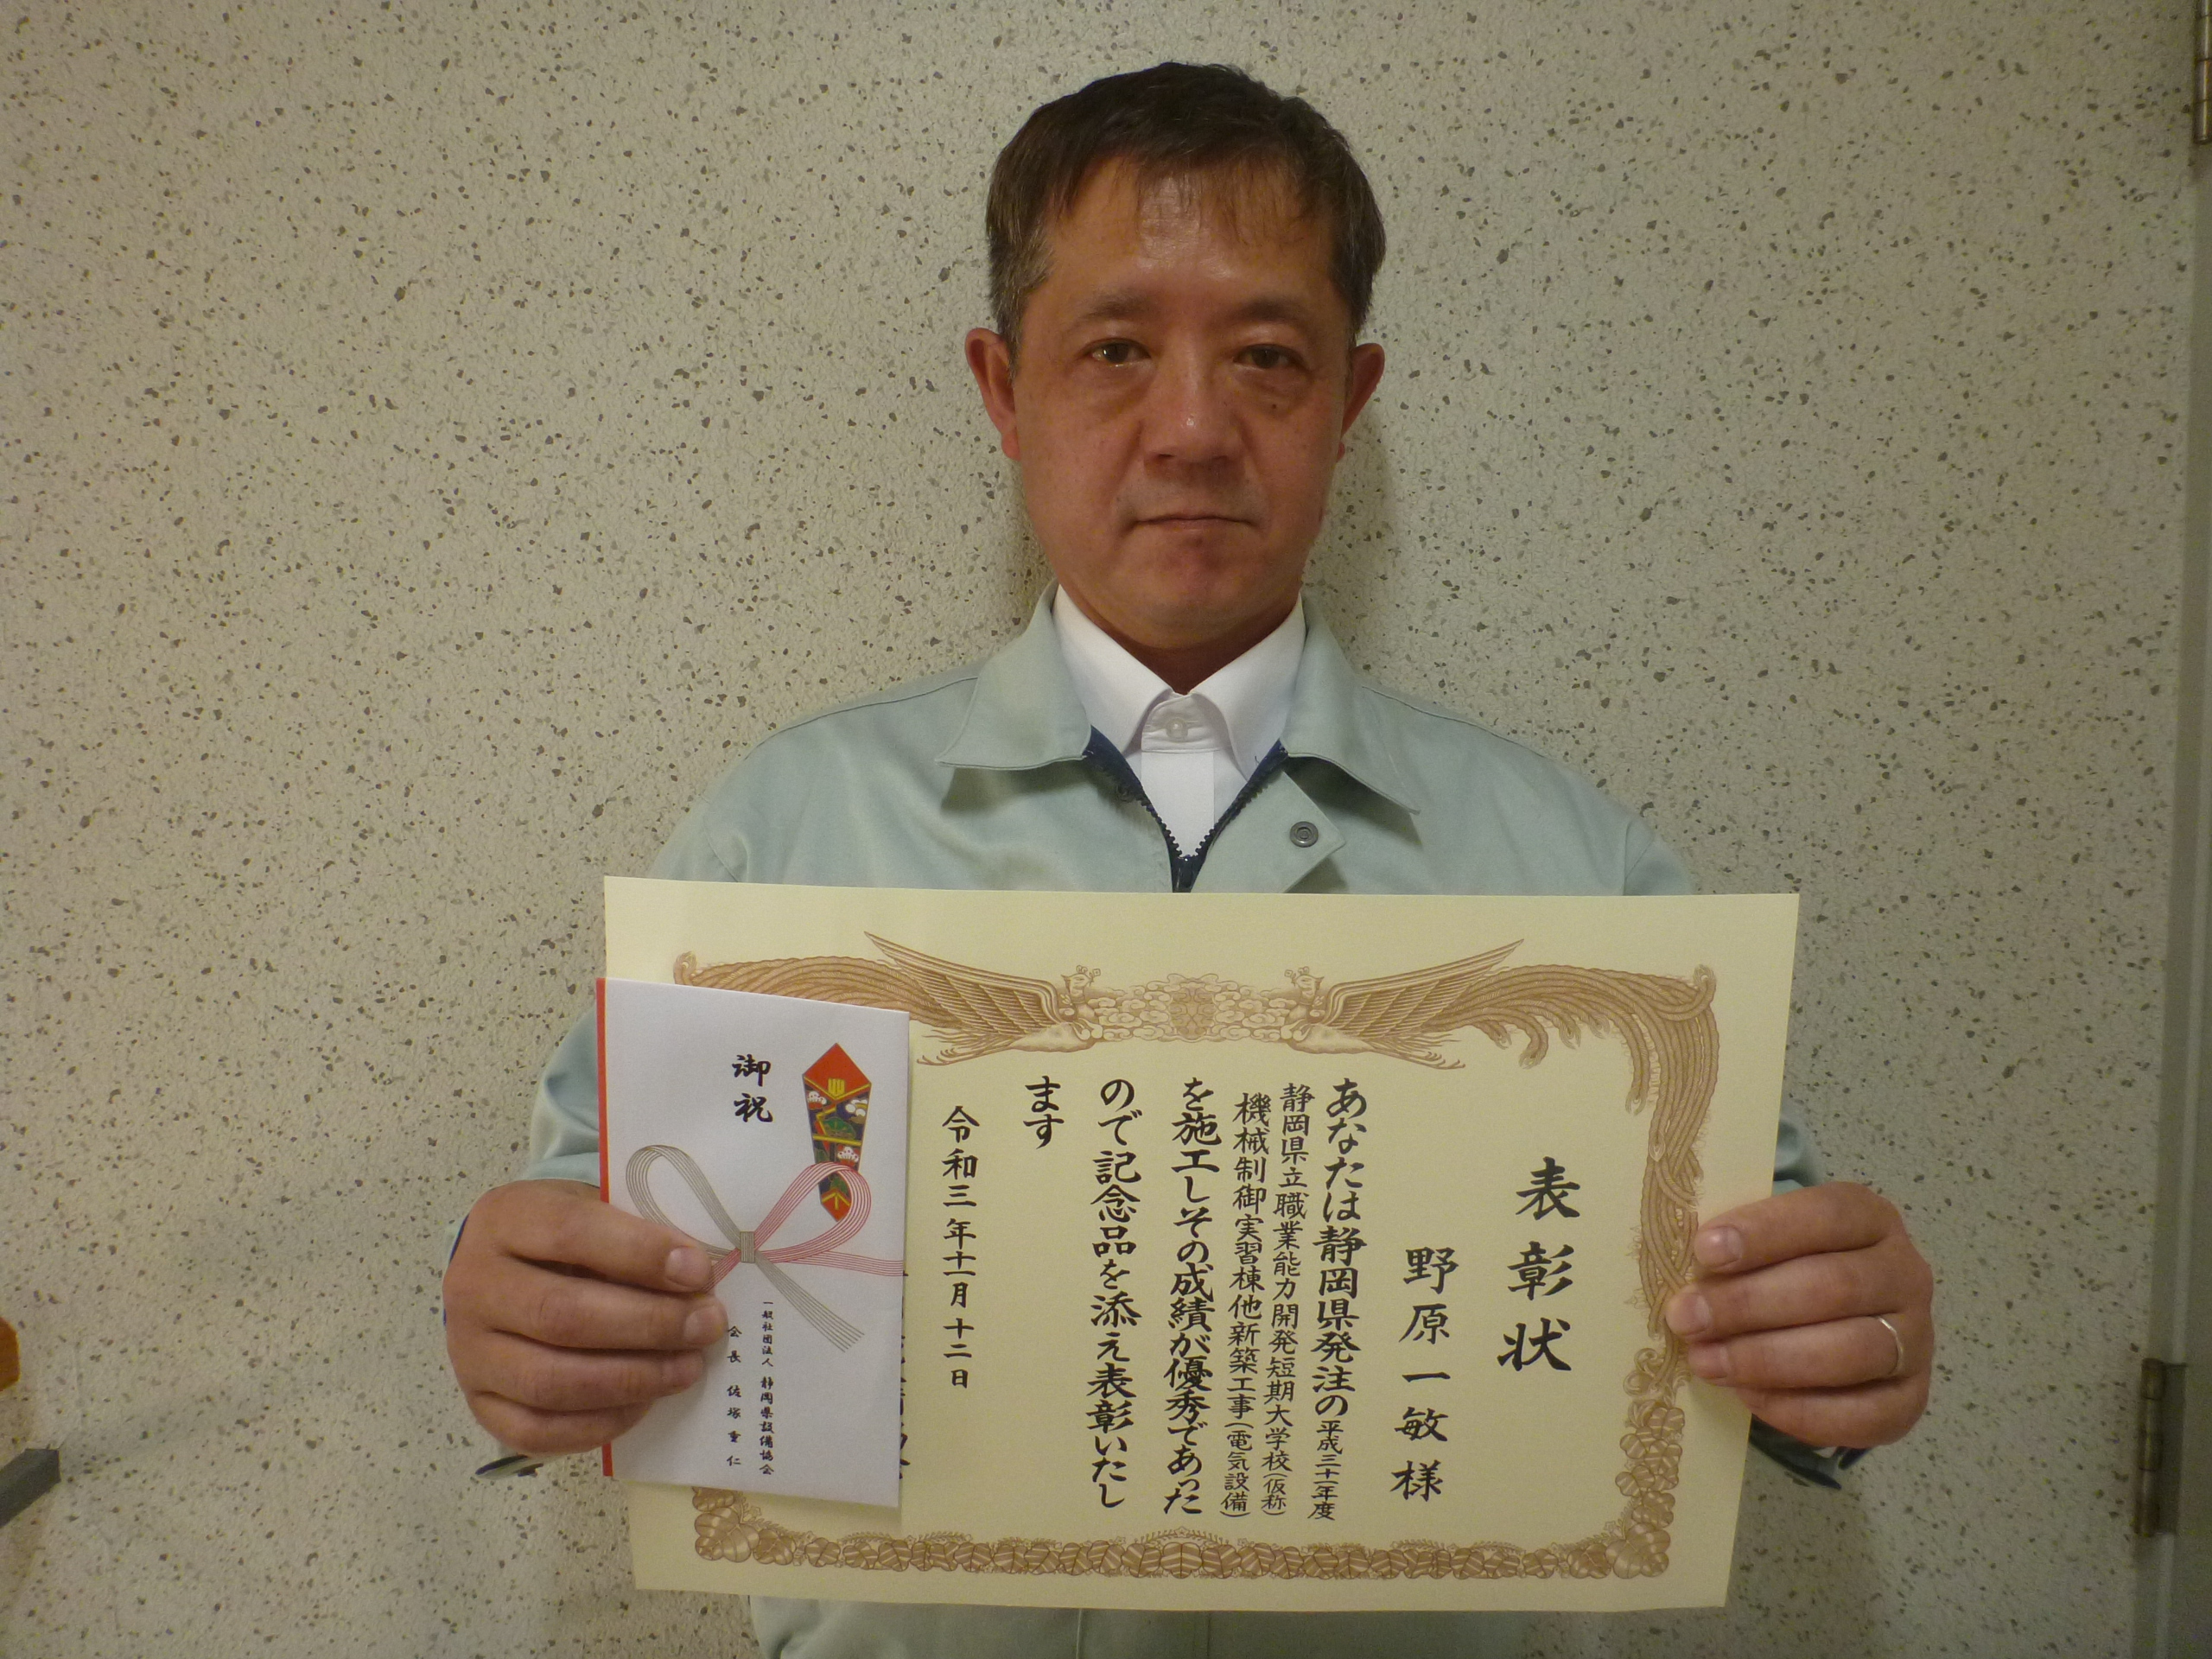 表彰状
野原一敏様
あなたは静岡県発注の平成三十一年度
静岡県立職業能力開発短期大学校(仮称)
機械制御実習棟他新築工事(電気設備)
を施工しその成績が優秀であった
ので記念品を添え表彰いたし
ます
令和三年十一月十二日
御祝
一般社団法人 静岡県設備協会
会長 佐塚重仁